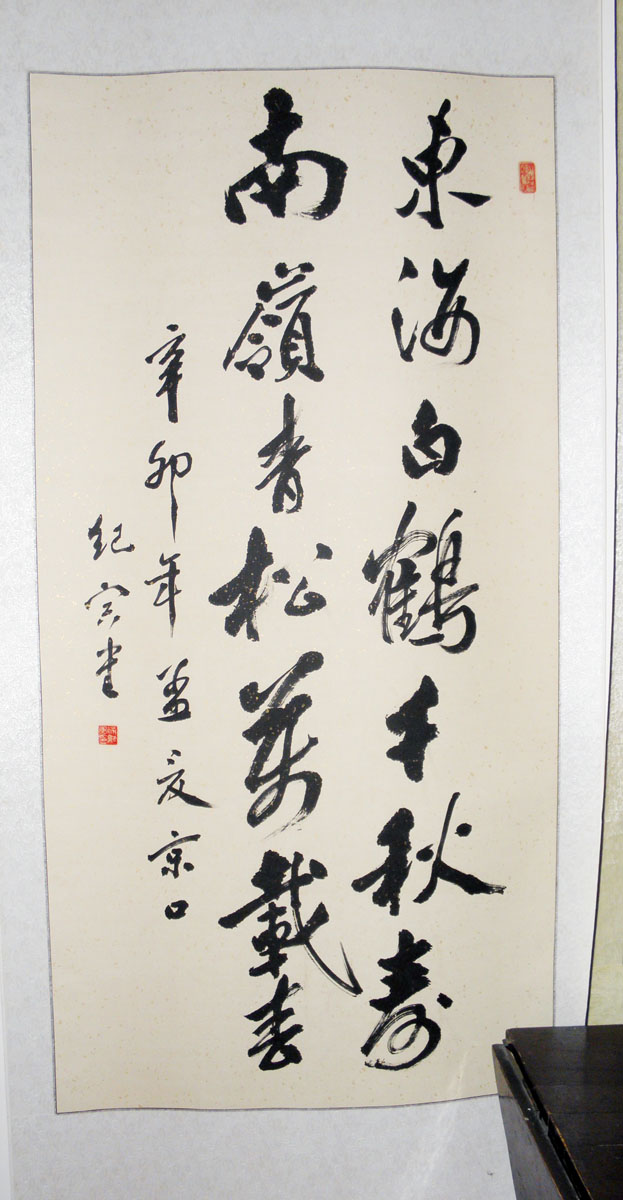 東海白鶴千秋壽
南嶺青松萬載春
辛卯年孟夏京口
紀寅生